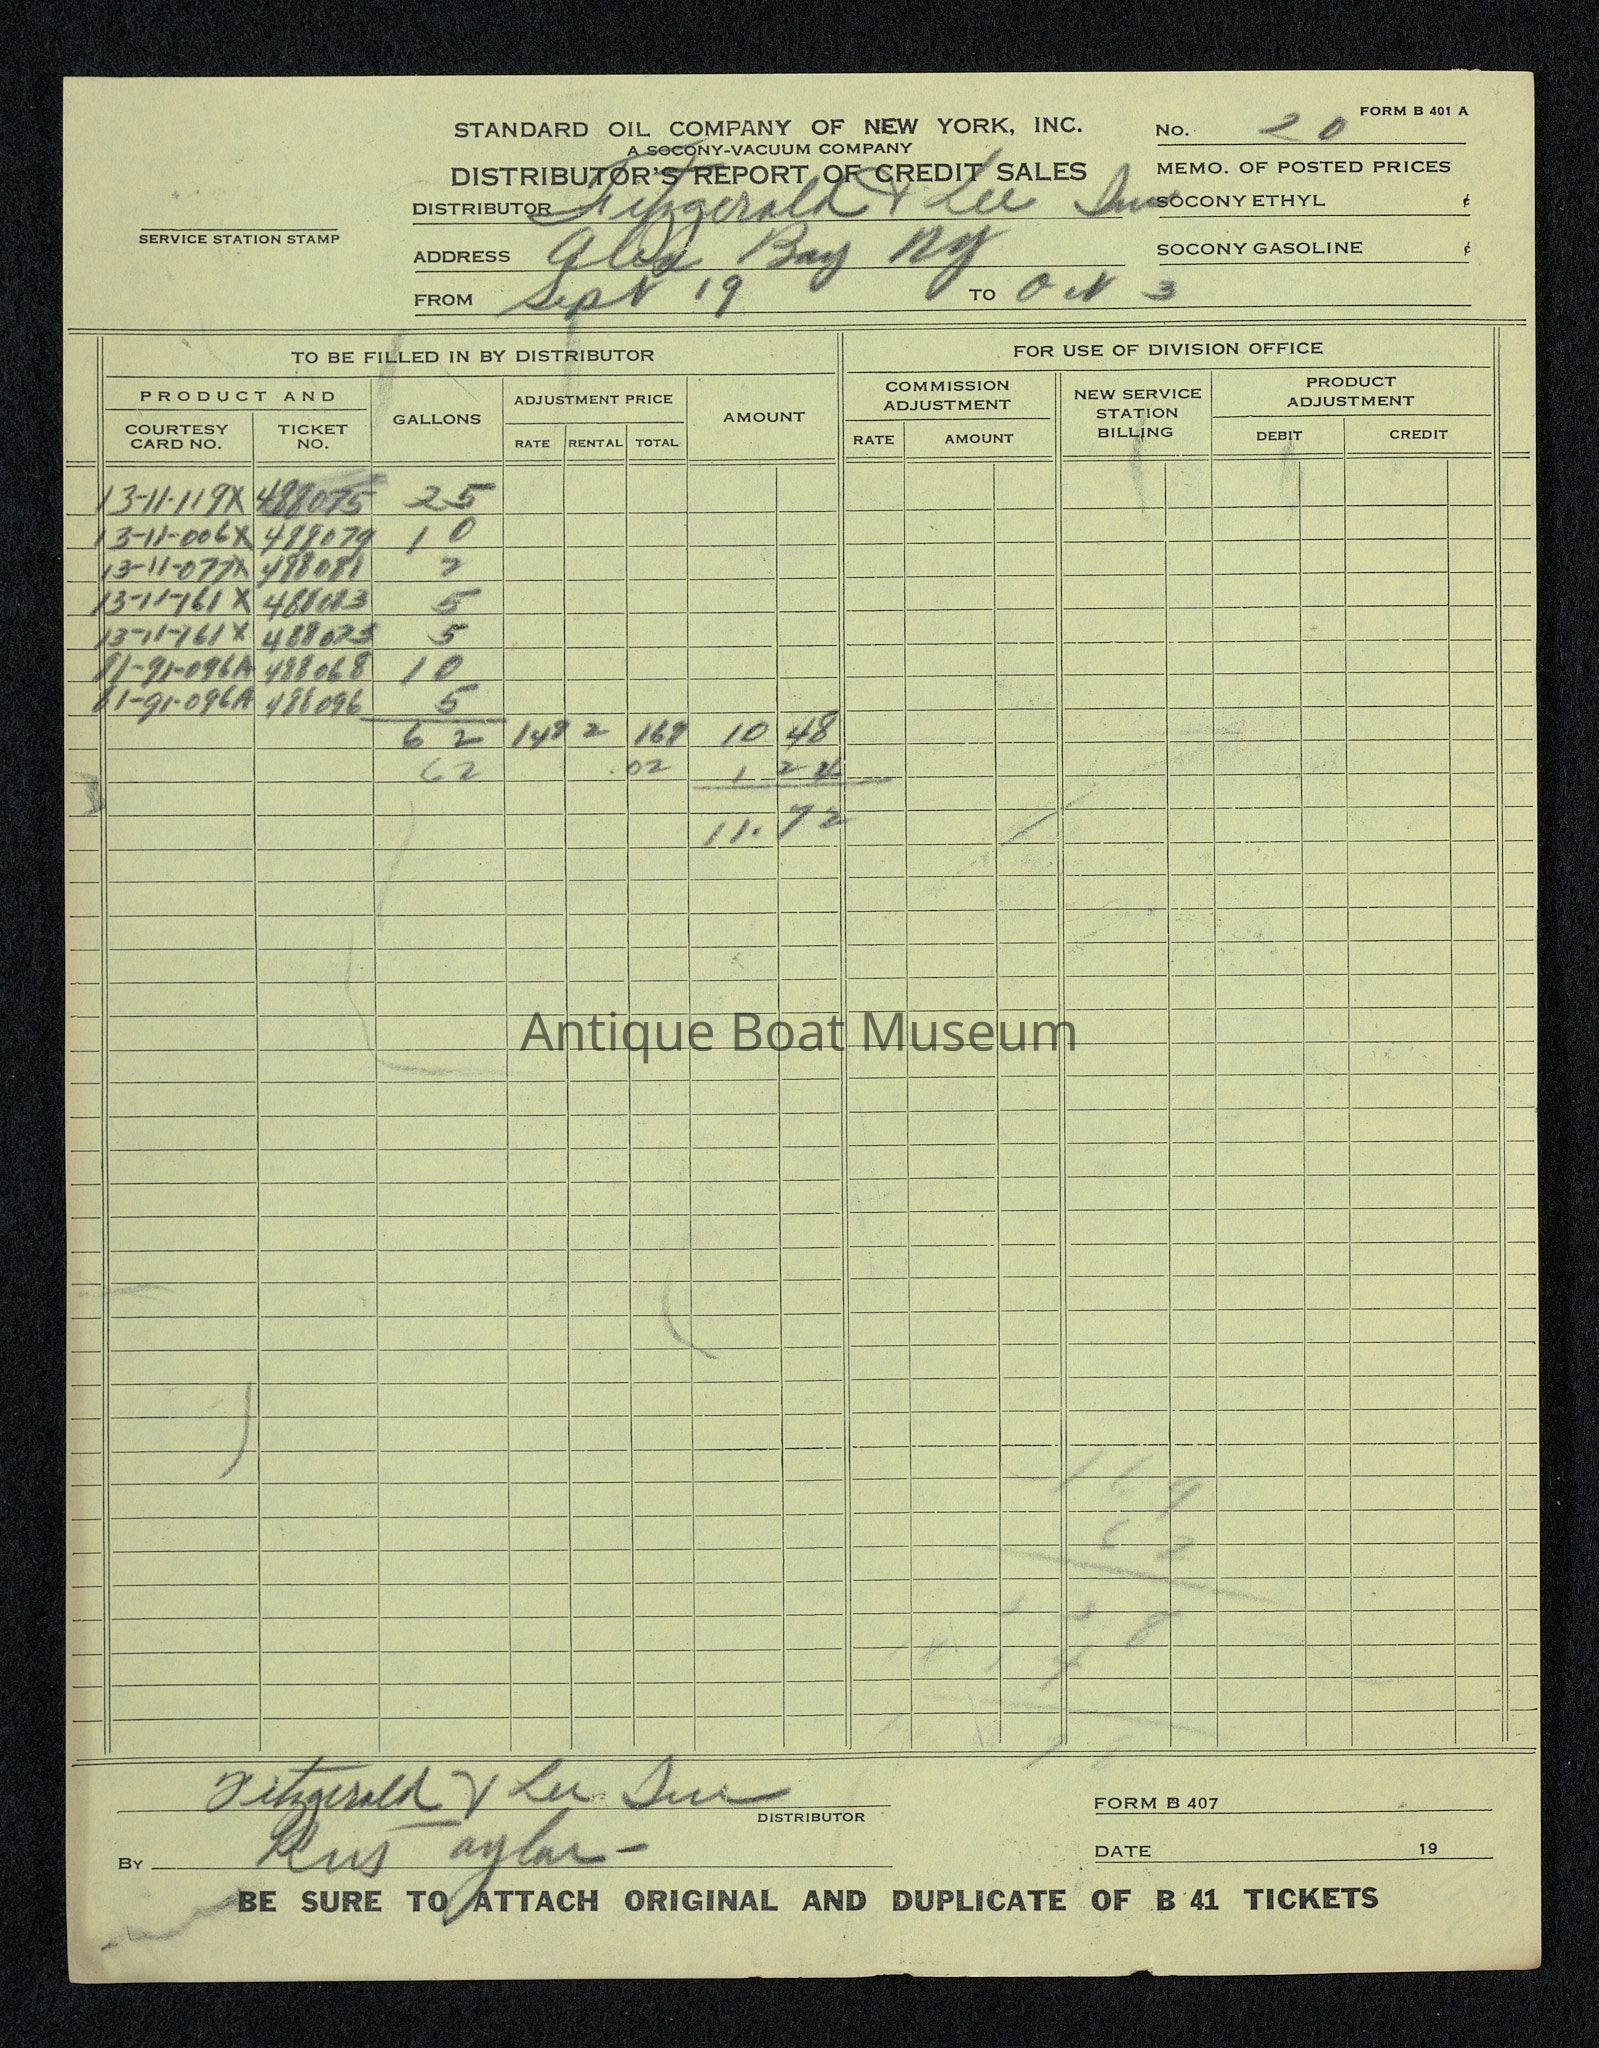 FORM B 401 A
STANDARD OIL COMPANY OF NEW YORK, INC.
No. 20
A SOCONY-VACUUM COMPANY
DISTRIBUTOR'S REPORT OF CREDIT SALES
MEMO. OF POSTED PRICES
DISTRIBUTOR Fitzgerald & Lee Inc
SOCONY ETHYL ¢
SERVICE STATION STAMP
ADDRESS Alex Bay NY
SOCONY GASOLINE ¢
FROM Sept 19 TO Oct 3
TO BE FILLED IN BY DISTRIBUTOR
FOR USE OF DIVISION OFFICE
PRODUCT AND
COURTESY CARD NO.
TICKET NO.
GALLONS
ADJUSTMENT PRICE
RATE RENTAL TOTAL
AMOUNT
COMMISSION ADJUSTMENT
RATE AMOUNT
NEW SERVICE STATION BILLING
PRODUCT ADJUSTMENT
DEBIT CREDIT
13-11-119X 488075 25
13-11-006X 488079 10
13-11-077X 488081 2
13-11-161X 488083 5
13-11-161X 488073 5
81-91-096A 488068 10
81-91-096A 488096 5
62 149 2 169 10 48
62 .02 1 24
11.72
Antique Boat Museum
169
62
Fitzgerald & Lee Inc
DISTRIBUTOR
FORM B 407
By Rus Taylor
DATE 19
BE SURE TO ATTACH ORIGINAL AND DUPLICATE OF B 41 TICKETS